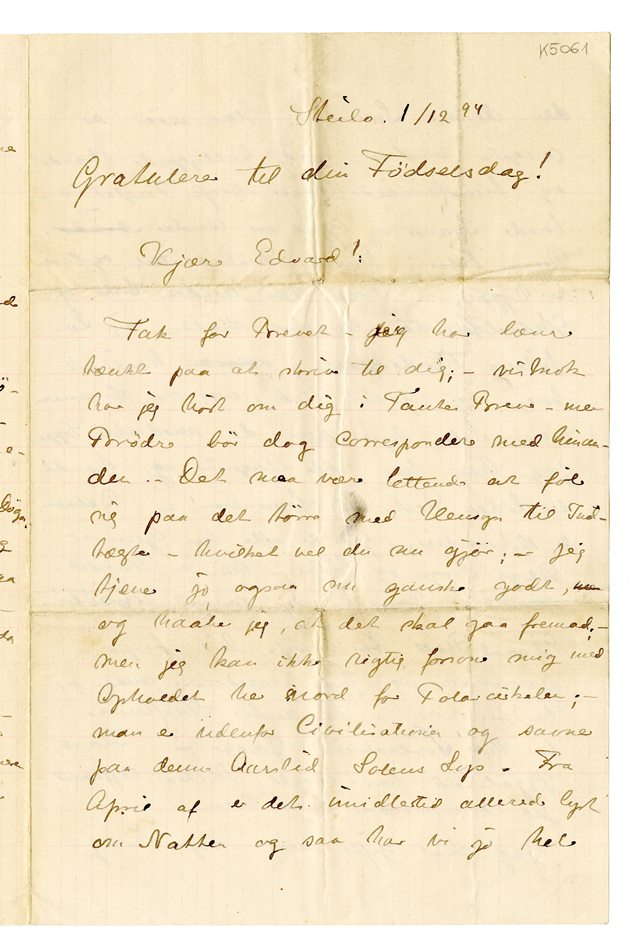 K5061
Steilo. 1/12 94
Gratulere til din Födselsdag!
Kjære Edvard!:
Tak for Brevet – jeg har længe
tænkt paa at skrive til dig; – vistnok
har jeg hört om dig i Tantes Breve – men
Brödre bör dog correspondere med hinan-
den. – Det maa være lettende at föle
sig paa det törre med Hensyn til Ind-
tægter – hvilket vel du nu gjör; – jeg
tjener jo ogsaa nu ganske godt,
og haaber jeg, at det skal gaa fremad; –
men jeg kan ikke rigtig forsone mig med
Opholdet her nord for Polarcirkelen; –
man er udenfor Civilisationen og savner
paa denne Aarstid Solens Lys. Fra
April af er det imidlertid allerede lyst
om Natten og saa har vi jo hele